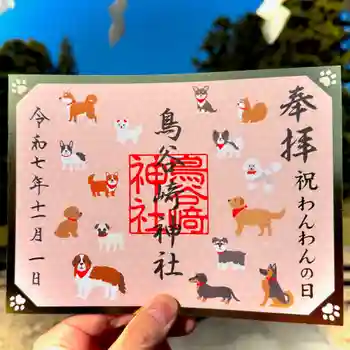 奉拝
祝わんわんの日
鳥谷崎神社
鳥谷崎
神社
令和七年十一月一日